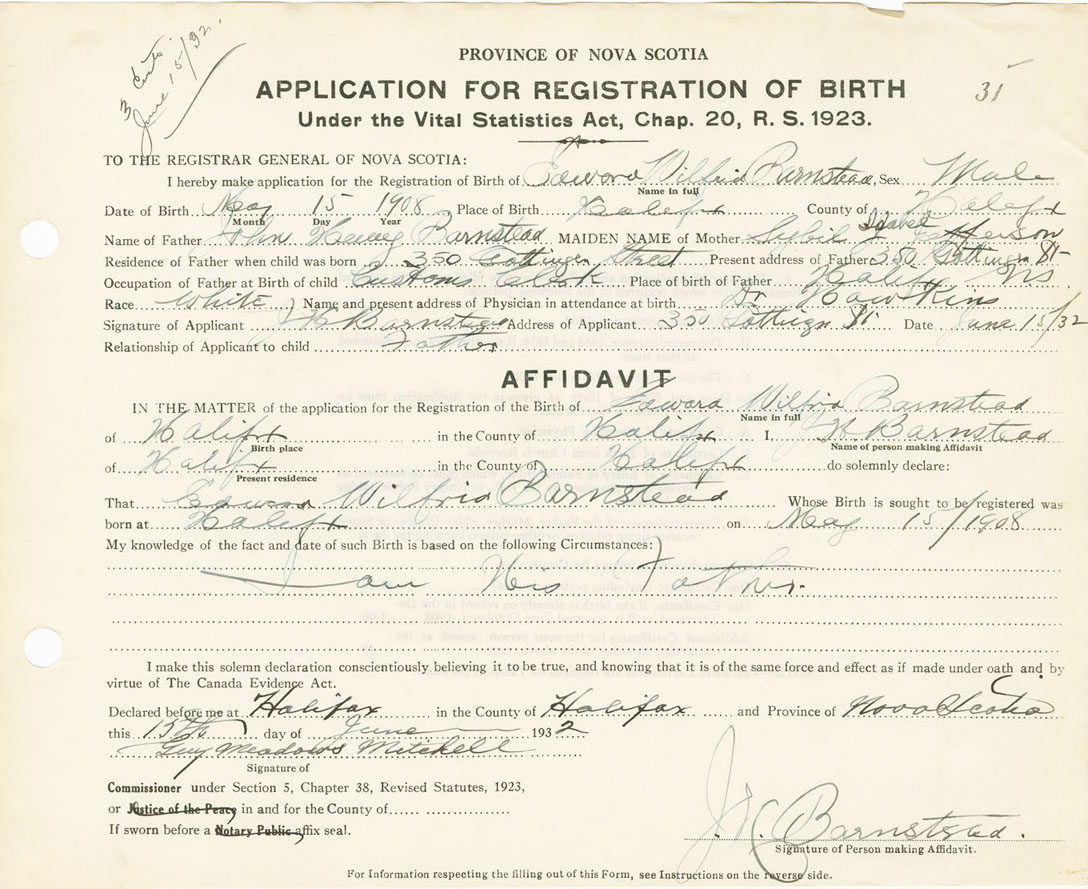 3 Certs.
June 15/32.
31
PROVINCE OF NOVA SCOTIA
APPLICATION FOR REGISTRATION OF BIRTH
Under the Vital Statistics Act, Chap. 20, R. S. 1923.
TO THE REGISTRAR GENERAL OF NOVA SCOTIA:
I hereby make application for the Registration of Birth of Edward Wilfrid Barnstead, Sex Male
Name in full
Date of Birth May 15 1908 Place of Birth Halifax County of Halifax
Month Day Year
Name of Father John Henry Barnstead MAIDEN NAME of Mother Sybil Isabel
Residence of Father when child was born 350 Gottingen Street Present address of Father 350 Gottingen St
Occupation of Father at Birth of child Customs Clerk Place of birth of Father Halifax NS
Race White Name and present address of Physician in attendance at birth Dr Hawkins
Signature of Applicant J H Barnstead Address of Applicant 350 Gottingen St. Date June 15/32
Relationship of Applicant to child Father
AFFIDAVIT
IN THE MATTER of the application for the Registration of the Birth of Edward Wilfrid Barnstead
Name in full
of Halifax in the County of Halifax I, J H Barnstead
Birth place Name of person making Affidavit
of Halifax in the County of Halifax do solemnly declare:
Present residence
That Edward Wilfrid Barnstead Whose Birth is sought to be registered was
born at Halifax on May 15/1908
My knowledge of the fact and date of such Birth is based on the following Circumstances:
I am His Father.
I make this solemn declaration conscientiously believing it to be true, and knowing that it is of the same force and effect as if made under oath and by
virtue of The Canada Evidence Act.
Declared before me at Halifax in the County of Halifax and Province of Nova Scotia
this 15th day of June 1932
Guy Meadows Mitchell
Signature of
Commissioner under Section 5, Chapter 38, Revised Statutes, 1923,
or Justice of the Peace, in and for the County of
If sworn before a Notary Public affix seal.
J. H. Barnstead.
Signature of Person making Affidavit.
For Information respecting the filling out of this Form, see Instructions on the reverse side.